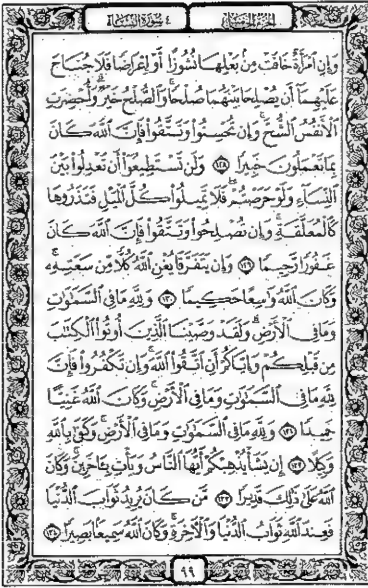 الجزء الخامس
٤ سورة النساء
وَإِنِ ٱمۡرَأَةٌ خَافَتۡ مِنۢ بَعۡلِهَا نُشُوزًا أَوۡ إِعۡرَاضٗا فَلَا جُنَاحَ
عَلَيۡهِمَآ أَن يُصۡلِحَا بَيۡنَهُمَا صُلۡحٗاۚ وَٱلصُّلۡحُ خَيۡرٞۗ وَأُحۡضِرَتِ
ٱلۡأَنفُسُ ٱلشُّحَّۚ وَإِن تُحۡسِنُواْ وَتَتَّقُواْ فَإِنَّ ٱللَّهَ كَانَ
بِمَا تَعۡمَلُونَ خَبِيرٗا ١٢٨ وَلَن تَسۡتَطِيعُوٓاْ أَن تَعۡدِلُواْ بَيۡنَ
ٱلنِّسَآءِ وَلَوۡ حَرَصۡتُمۡۖ فَلَا تَمِيلُواْ كُلَّ ٱلۡمَيۡلِ فَتَذَرُوهَا
كَٱلۡمُعَلَّقَةِۚ وَإِن تُصۡلِحُواْ وَتَتَّقُواْ فَإِنَّ ٱللَّهَ كَانَ
غَفُورٗا رَّحِيمٗا ١٢٩ وَإِن يَتَفَرَّقَا يُغۡنِ ٱللَّهُ كُلّٗا مِّن سَعَتِهِۦۚ
وَكَانَ ٱللَّهُ وَٰسِعًا حَكِيمٗا ١٣٠ وَلِلَّهِ مَا فِي ٱلسَّمَٰوَٰتِ
وَمَا فِي ٱلۡأَرۡضِۗ وَلَقَدۡ وَصَّيۡنَا ٱلَّذِينَ أُوتُواْ ٱلۡكِتَٰبَ
مِن قَبۡلِكُمۡ وَإِيَّاكُمۡ أَنِ ٱتَّقُواْ ٱللَّهَۚ وَإِن تَكۡفُرُواْ فَإِنَّ
لِلَّهِ مَا فِي ٱلسَّمَٰوَٰتِ وَمَا فِي ٱلۡأَرۡضِۚ وَكَانَ ٱللَّهُ غَنِيًّا
حَمِيدٗا ١٣١ وَلِلَّهِ مَا فِي ٱلسَّمَٰوَٰتِ وَمَا فِي ٱلۡأَرۡضِۚ وَكَفَىٰ بِٱللَّهِ
وَكِيلًا ١٣٢ إِن يَشَأۡ يُذۡهِبۡكُمۡ أَيُّهَا ٱلنَّاسُ وَيَأۡتِ بِـَٔاخَرِينَۚ وَكَانَ
ٱللَّهُ عَلَىٰ ذَٰلِكَ قَدِيرٗا ١٣٣ مَّن كَانَ يُرِيدُ ثَوَابَ ٱلدُّنۡيَا
فَعِندَ ٱللَّهِ ثَوَابُ ٱلدُّنۡيَا وَٱلۡأٓخِرَةِۚ وَكَانَ ٱللَّهُ سَمِيعَۢا بَصِيرٗا ١٣٤
٩٩